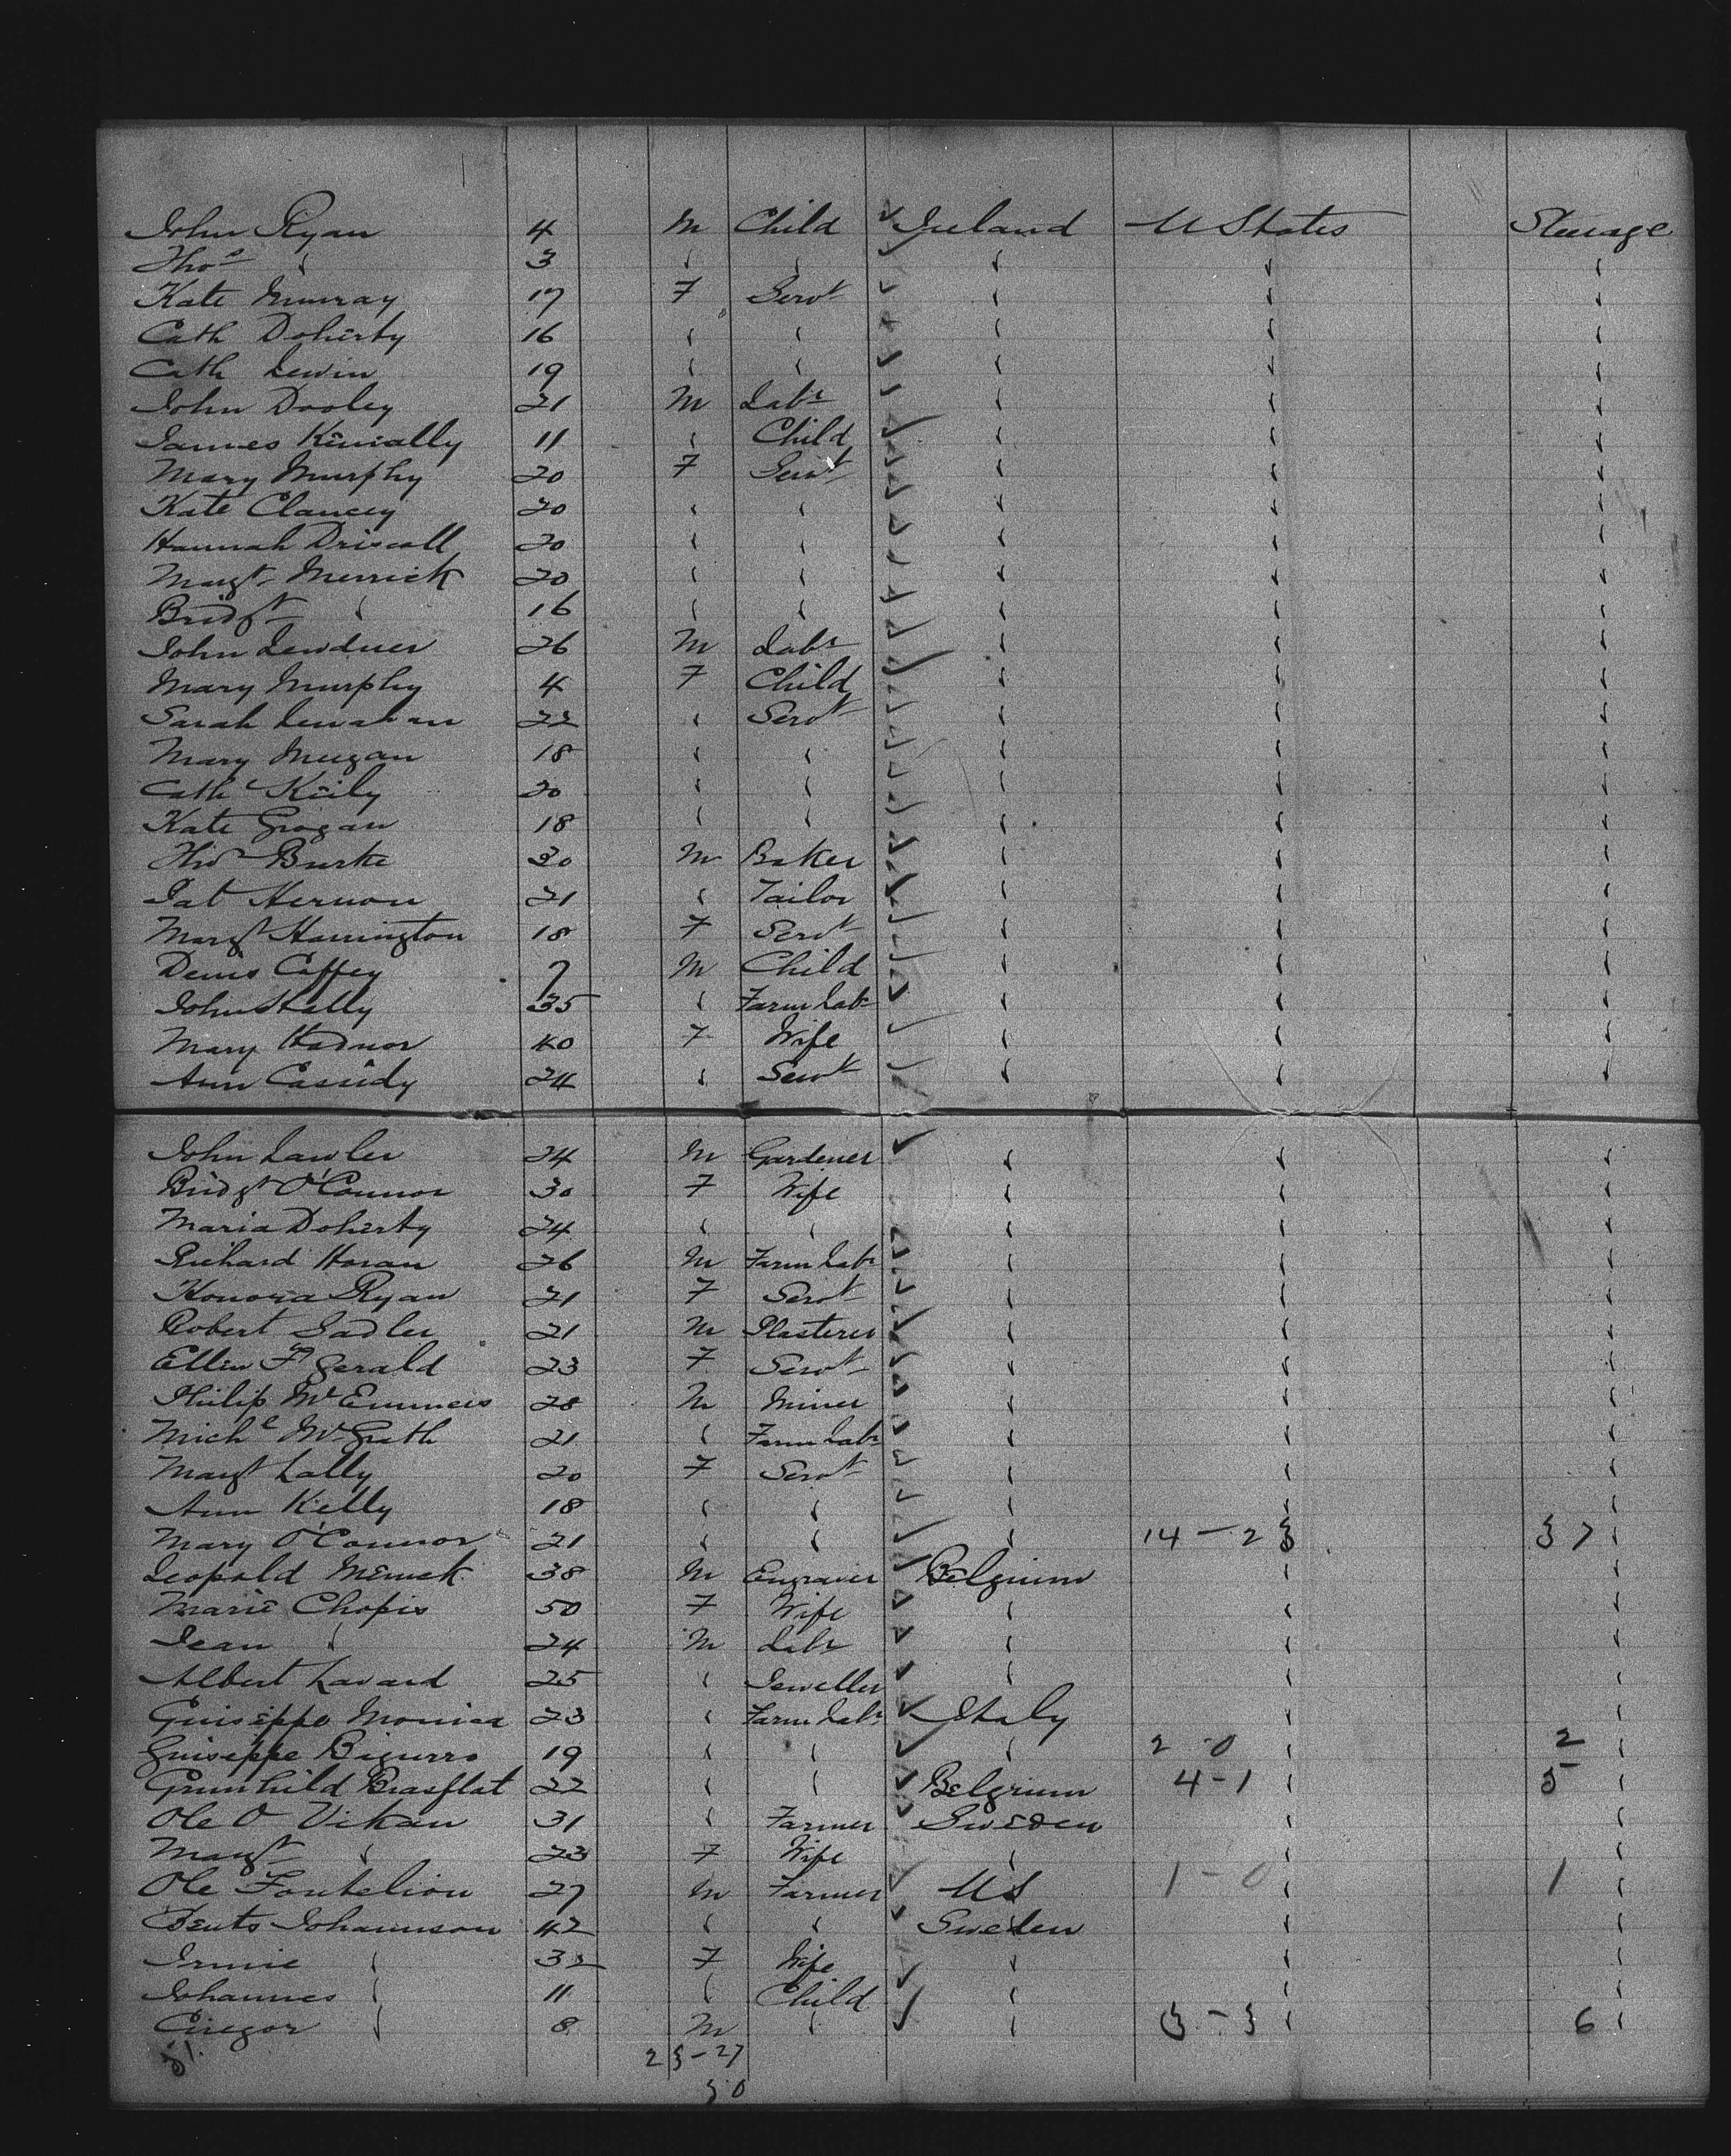 John Ryan 4 M Child Ireland U States Steerage
Thos " 3 " " " " "
Kate Murray 17 F Servt " " "
Cath Doherty 16 " " " " "
Cath Lewin 19 " " " " "
John Dooley 21 M Labr " " "
James Kinially 11 " Child " " "
Mary Murphy 20 F Servt " " "
Kate Clancey 20 " " " " "
Hannah Driscoll 20 " " " " "
Margt Merrick 20 " " " " "
Bridgt " 16 " " " " "
John 26 M Labr " " "
Mary Murphy 4 F Child " " "
Sarah Lenahan 22 " Servt " " "
Mary Meegan 18 " " " " "
Cath Kiely 20 " " " " "
Kate Grogan 18 " " " " "
Thos Burke 30 M Baker " " "
Pat Hernon 21 " Tailor " " "
Margt Harrington 18 F Servt " " "
Denis Caffey 7 M Child " " "
John Skally 35 " Farm Labr " " "
Mary Hadnor 40 F Wife " " "
Ann Cassidy 24 " Servt " " "
John Lawler 24 M Gardener " " "
Bridgt O'Connor 30 F Wife " " "
Maria Doherty 24 " " " " "
Richard Horan 26 M Farm Labr " " "
Honora Ryan 21 F Servt " " "
Robert Sadler 21 M Plasterer " " "
Ellen Fz Gerald 23 F Servt " " "
Philip Mc 28 M Miner " " "
Michl McGrath 21 " Farm Labr " " "
Margt Lally 20 F Servt " " "
Ann Kelly 18 " " " " "
Mary O'Connor 21 " " " 14 - 23 " 37 "
Leopold 38 M Engraver Belgium " "
Marie Chopis 50 F Wife " " "
Jean " 24 M Labr " " "
Albert Lavard 25 " Jeweller " " "
Guiseppe Monica 23 " Farm Labr Italy " "
Guiseppe Bigurro 19 " " " 2 - 0 " 2 "
Grunhild Brasflat 22 " " Belgium 4 - 1 " 5 "
Ole O Vikan 31 " Farmer Sweden " "
Margt " 23 F Wife " " "
Ole Fontelion 27 M Farmer US 1 - 0 " 1 "
Bents Johannson 42 " " Sweden " "
Innie " 32 F Wife " " "
Johannes " 11 " Child " " "
Gregor " 8 M " " 3 - 3 " 6 "
51. 23 - 27
50